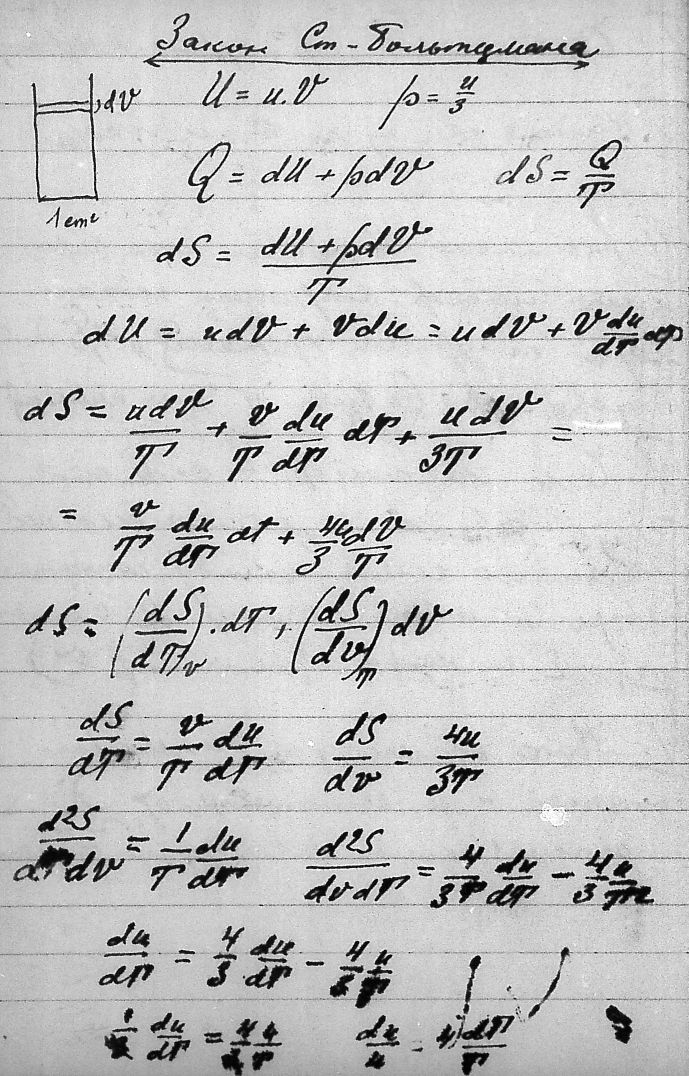 Закон Ст-Больтцмана
dV
U = u.V p = u/3
1 cm²
Q = dU + pdV dS = Q/T
dS = (dU + pdV)/T
dU = udV + Vdu = udV + V du/dT dT
dS = udV/T + V/T du/dT dT + udV/3T =
= V/T du/dT dt + 4u/3 dV/T
dS = (dS/dT)v . dT, (dS/dv)T dV
dS/dT = V/T du/dT dS/dv = 4u/3T
d2S/dTdV = 1/T du/dT d2S/dvdT = 4/3T du/dT - 4/3 u/T²
du/dT = 4/3 du/dT - 4/3 u/T
1/3 du/dT = 4/3 u/T du/u = 4 dT/T